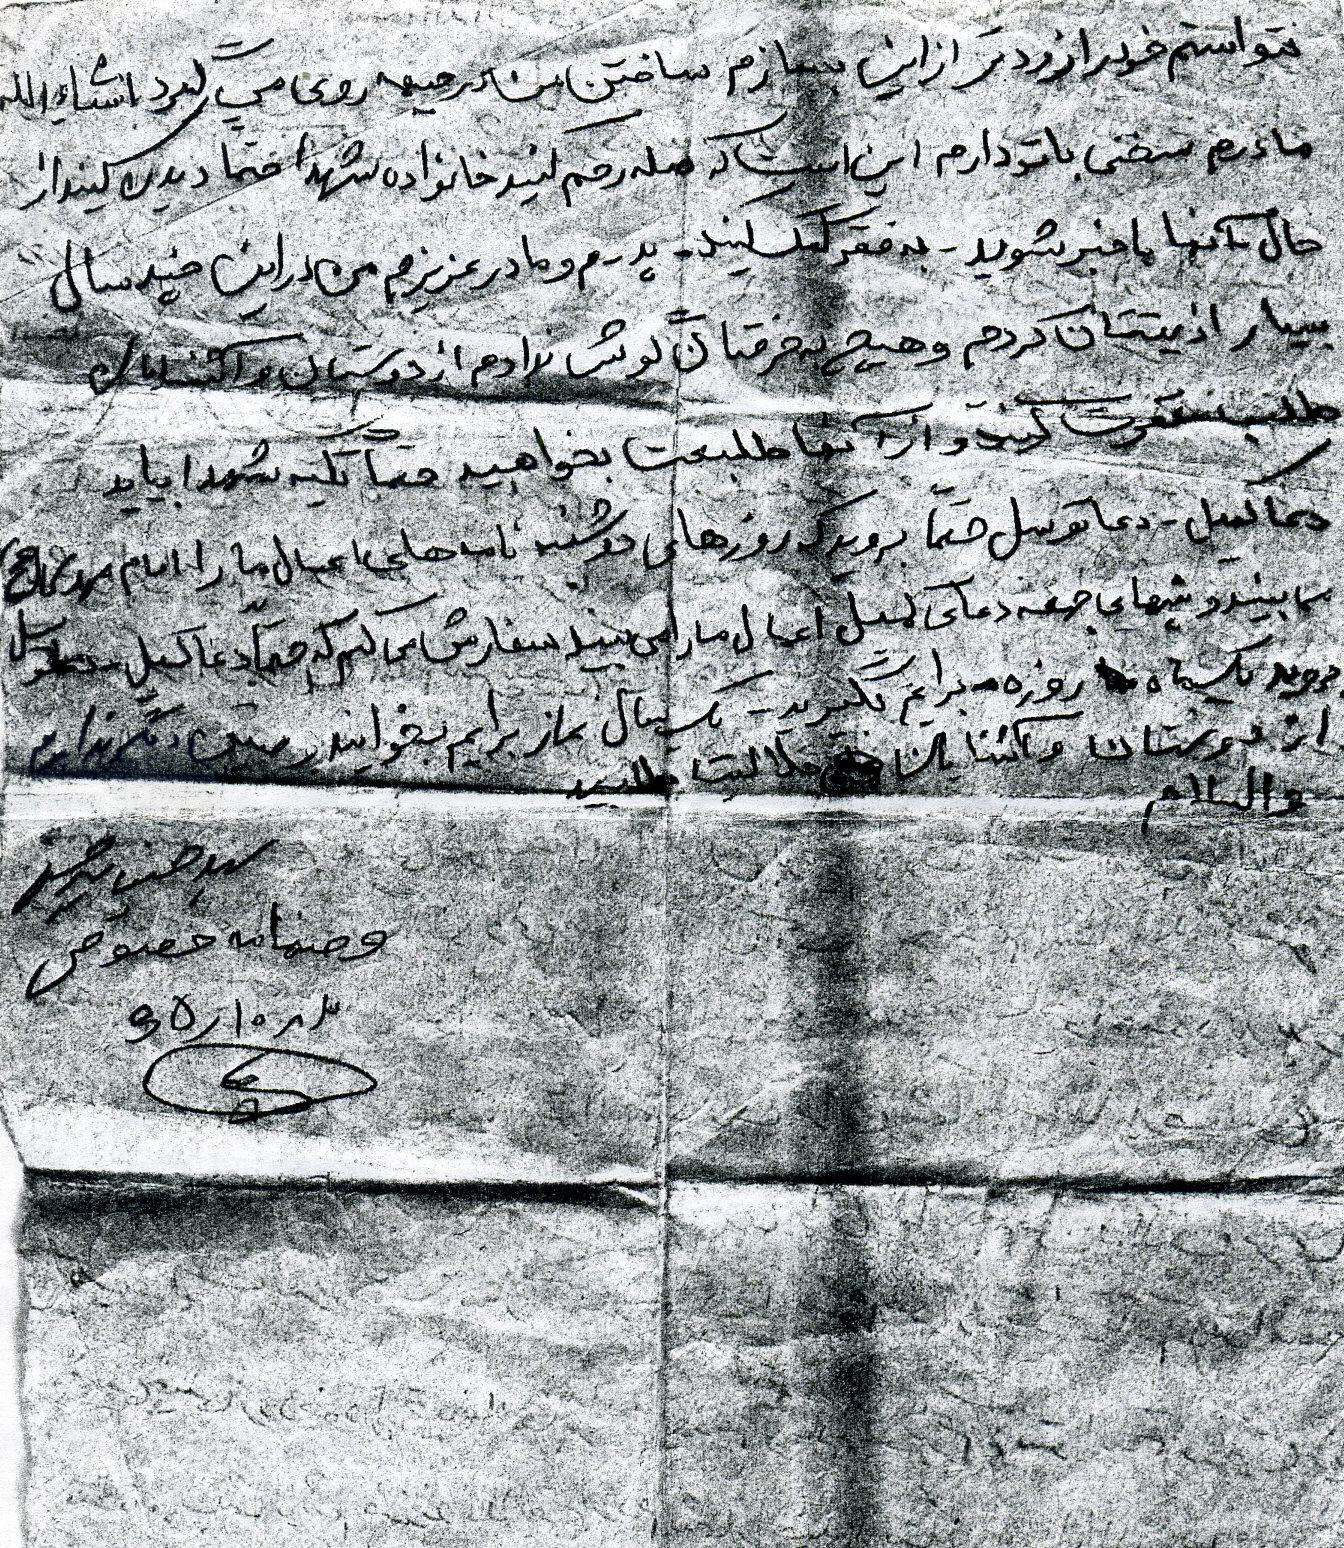 نتواستم خود را زودتر از این بسازم ساختن من در جبهه روی می گیرد انشاءالله
مادرم سخنی باتو دارم این است که صله رحم کنید خانواده شهدا حتما دیدن کنید از
حال آنها باخبر شوید - به فقر کمک کنید - پدرم و مادر عزیزم من در این چند سال
بسیار اذیتتان کردم و هیچ به حرفتان گوش ندادم از دوستان و آشنایان
طلب کنید و از آنها بخواهید حتماً تکیه شهدا بیاید
دعا کمیل - دعا توسل حتماً بروید که روزهای دوشنبه نامه های اعمال ما را امام
می بیند و شبهای جمعه دعای کمیل اعمال ما را می بیند سفارش می کنم که حتماً دعا کمیل - توسل
بروید یکماه روزه برایم بگیرید - یکسال نماز برایم بخوانید دیگر ندارم
از دوستان و آشنایان حلالیت طلبید
والسلام
سید
وصیتنامه خصوصی